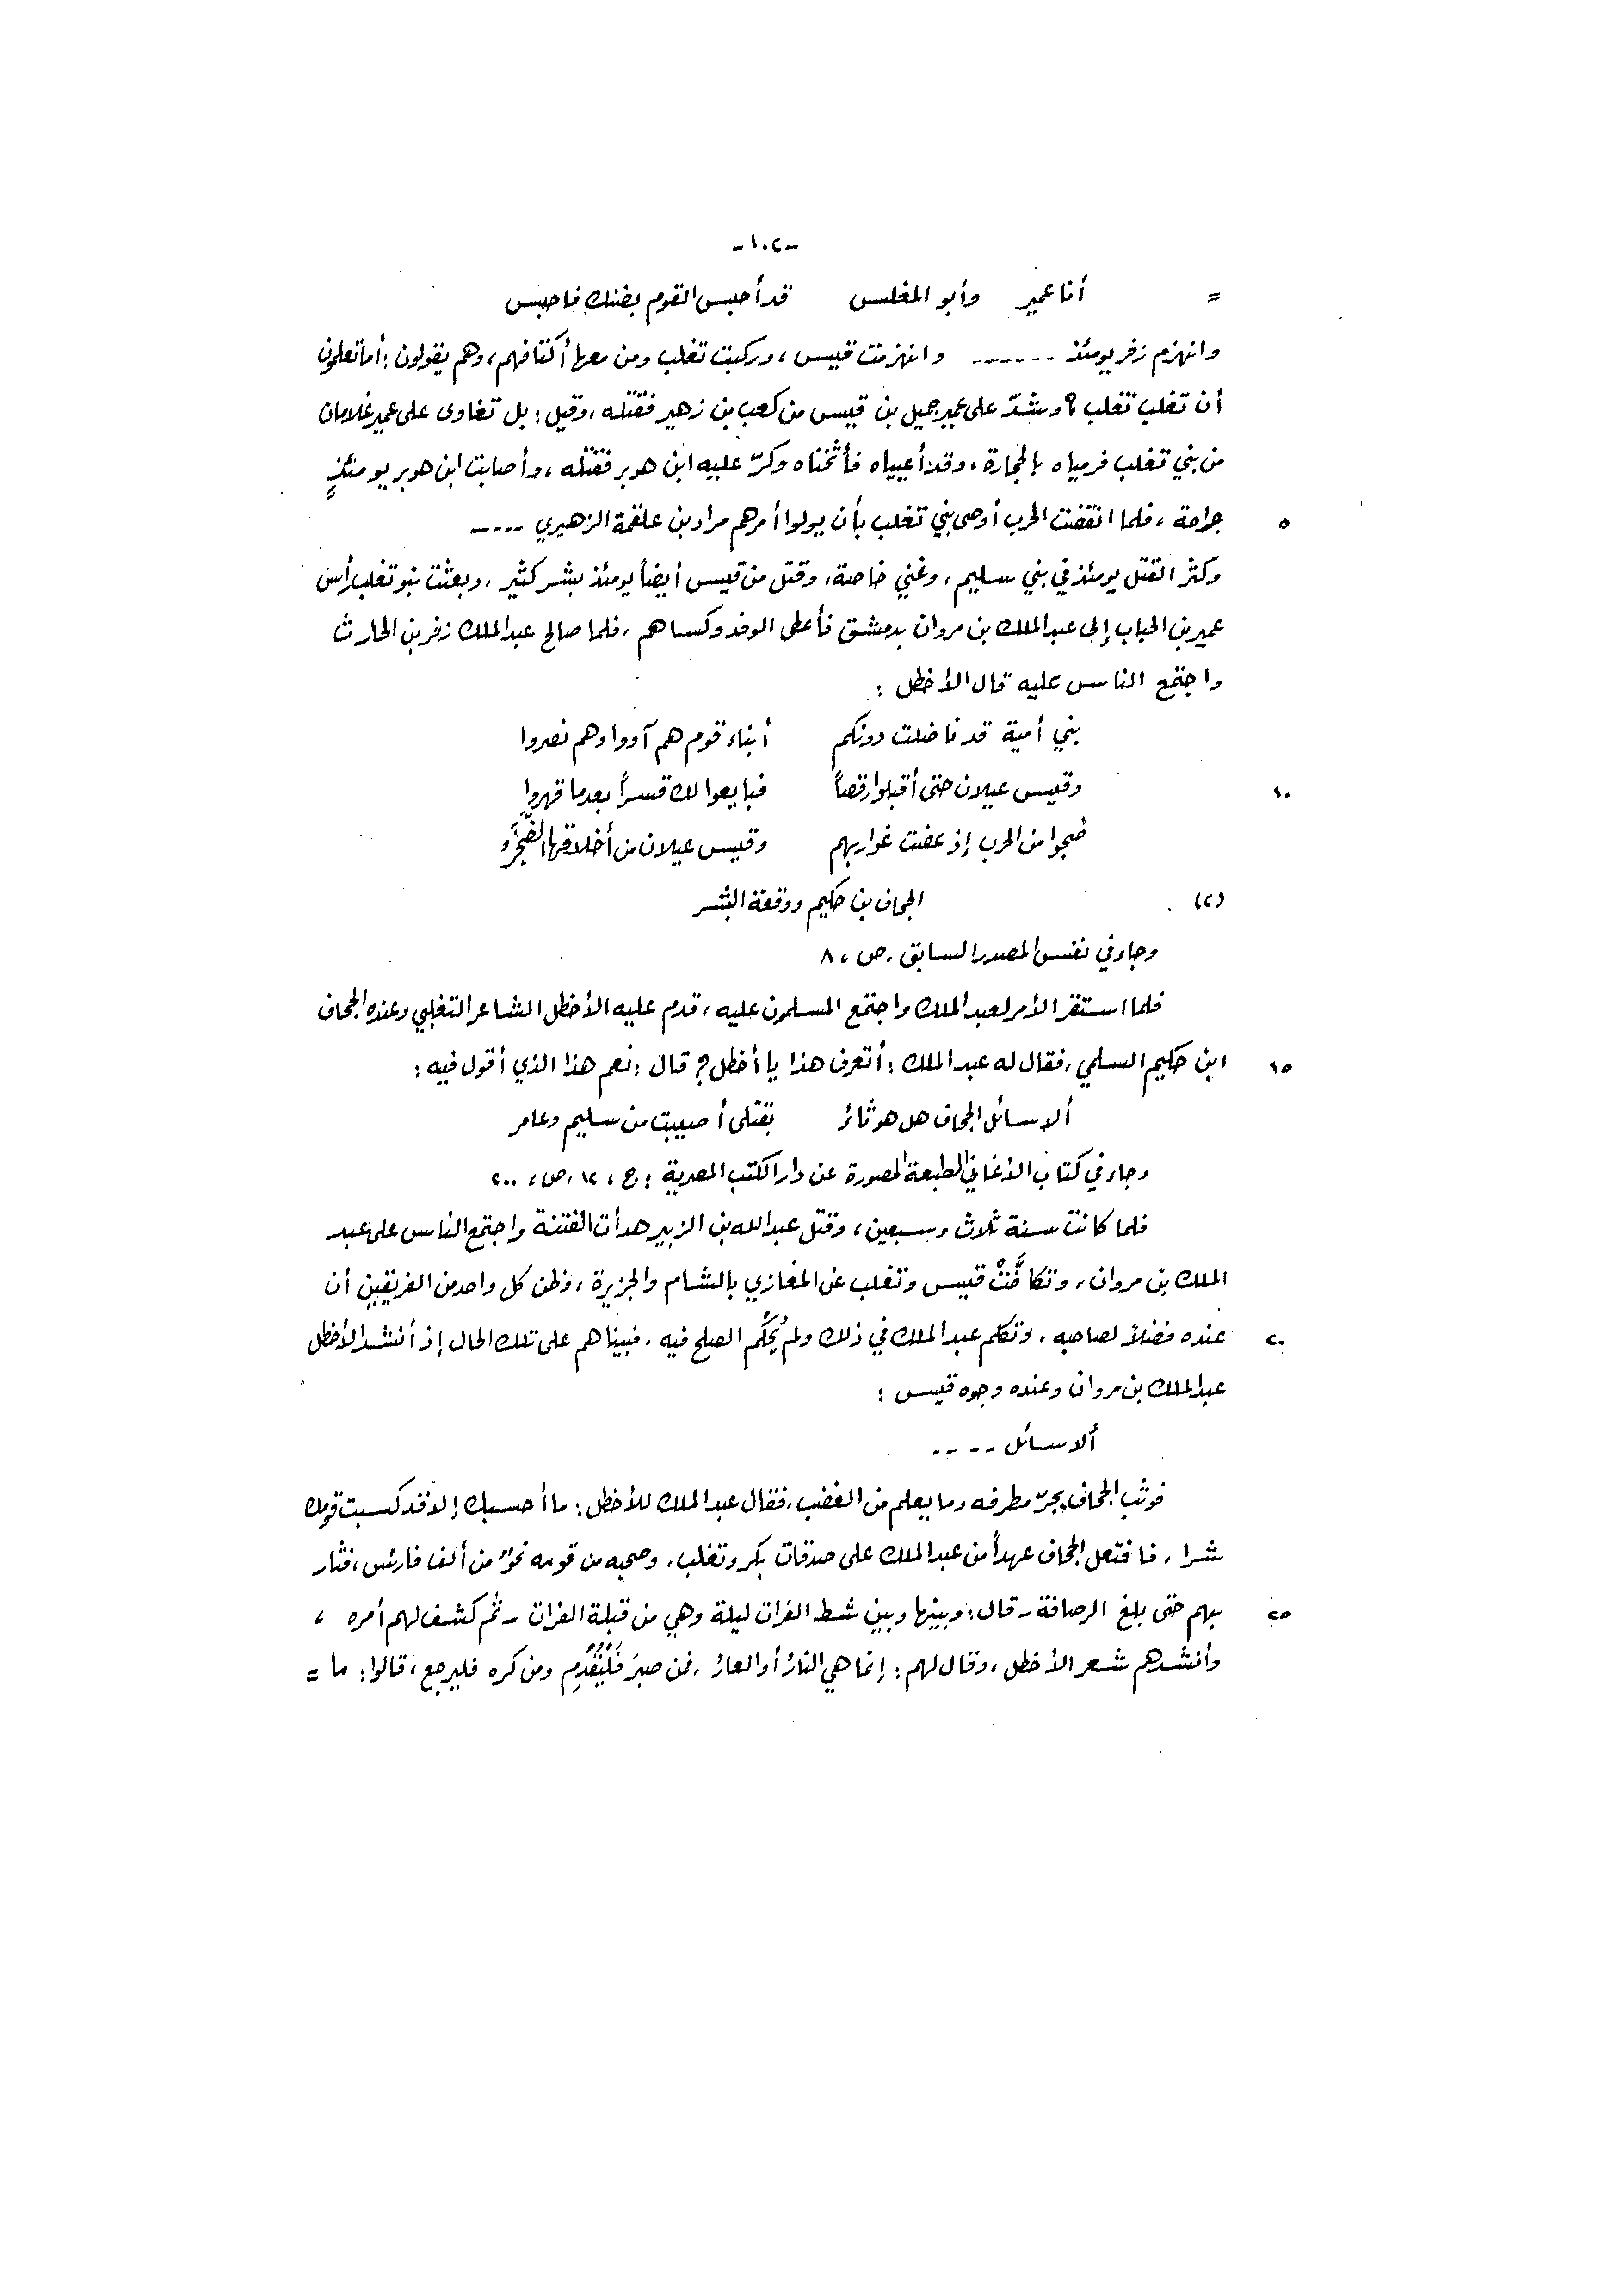 -١٠٢-
= أنا عمير وأبو المغلس قد أحبس القوم بضنك فاحبس
وانهزم زفر يومئذ ------ وانهزمت قيس، وركبت تغلب ومن معها أكتافهم، وهم يقولون: أما تعلمون
أن تغلب تغلب؟ وشدّ على عمير جميل بن قيس من كعب بن زهير فقتله، وقيل: بل تغاوى على عمير غلامان
من بني تغلب فرمياه بالحجارة، وقد أعيياه فأثخناه وكرّ عليه ابن هوبر فقتله، وأصابت ابن هوبر يومئذٍ
٥ جراحة، فلما انقضت الحرب أوصى بني تغلب بأن يولوا أمرهم مراد بن علقمة الزهيري -----
وكثر القتل يومئذ في بني سليم، وغني خاصة، وقتل من قيس أيضاً يومئذ بشر كثير، وبعثت بنو تغلب رأس
عمير بن الحباب إلى عبد الملك بن مروان بدمشق فأعطى الوفد وكساهم، فلما صالح عبد الملك زفر بن الحارث
واجتمع الناس عليه قال الأخطل:
بني أمية قد ناضلت دونكم أبناء قوم هم آووا وهم نصروا
١٠ وقيس عيلان حتى أقبلوا رقصاً فبايعوا لك قسراً بعدما قهروا
ضجوا من الحرب إذ عضت غواربهم وقيس عيلان من أخلاقها الضَّجَرُ
(٢) الجحاف بن حكيم ووقعة البشر
وجاء في نفس المصدر السابق، ص، ٨
فلما استقر الأمر لعبد الملك واجتمع المسلمون عليه، قدم عليه الأخطل الشاعر التغلبي وعنده الجحاف
١٥ ابن حكيم السلمي، فقال له عبد الملك: أتعرف هذا يا أخطل؟ قال: نعم هذا الذي أقول فيه:
ألا سائل الجحاف هل هو ثائر بقتلى أصيبت من سليم وعامر
وجاء في كتاب الأغاني الطبعة المصورة عن دار الكتب المصرية: ج، ١٢، ص، ٢٠٠
فلما كانت سنة ثلاث وسبعين، وقتل عبد الله بن الزبير هدأت الفتنة واجتمع الناس على عبد
الملك بن مروان، وتكافَّتْ قيس وتغلب عن المغازي بالشام والجزيرة، وظن كل واحد من الفريقين أن
٢٠ عنده فضلاً لصاحبه، وتكلم عبد الملك في ذلك ولم يُحكَم الصلح فيه، فبينا هم على تلك الحال إذ أنشد الأخطل
عبد الملك بن مروان وعنده وجوه قيس:
ألا سائل ----
فوثب الجحاف يجرّ مطرفه وما يعلم من الغضب، فقال عبد الملك للأخطل: ما أحسبك إلا قد كسبت قومك
شرا، فافتعل الجحاف عهداً من عبد الملك على صدقات بكر وتغلب، وصحبه من قومه نحوٌ من ألف فارس، فثار
٢٥ بهم حتى بلغ الرصافة - قال: وبينها وبين شط الفرات ليلة وهي من قبلة الفرات - ثم كشف لهم أمره،
وأنشدهم شعر الأخطل، وقال لهم: إنما هي النارُ أو العارُ، فمن صبرَ فَلْيُقْدِم ومن كره فليرجع، قالوا: ما =